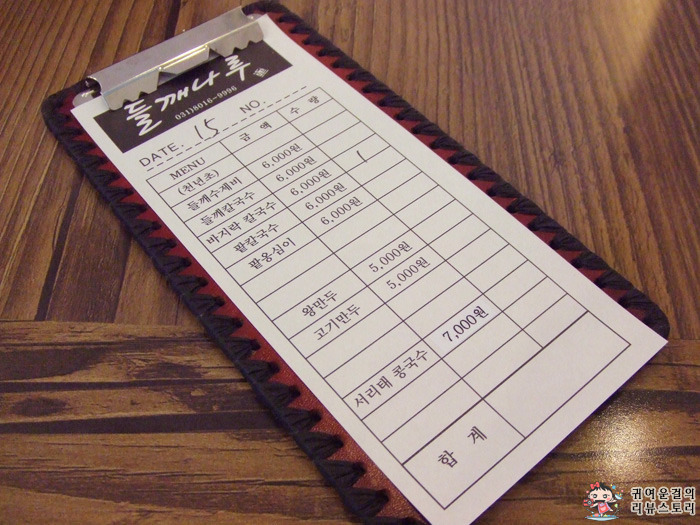 들깨나루
031)8016-9996
DATE. 15 NO.
MENU 금 액 수 량
(천년초)
들깨수제비 6,000원
들깨칼국수 6,000원
바지락 칼국수 6,000원 1
팥칼국수 6,000원
팥옹심이 6,000원
왕만두 5,000원
고기만두 5,000원
서리태 콩국수 7,000원
합 계
귀여운걸의
리뷰스토리